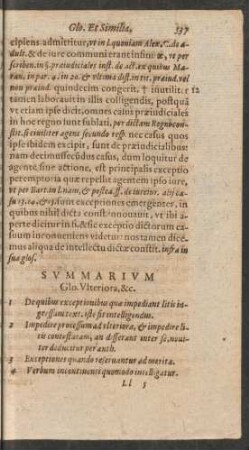 Glo. Et Similia,
cipiens admittitur, vt in l. quoniam Alex. C. de a-
dult. & de iure communi erant infinitæ, vt per
scriben. in §. præiudiciales inst. de act. ex quibus Ma-
ran. in par. 4. in 20. & vltima dist. in tit. præiud. vel
non præiud. quindecim congerit, † inutiliter 12
tamen laborauit in illis colligendis, postquã
vt etiam ipse dicit, omnes causæ præiudiciales
in hoc regno sunt sublati, per dictam
st. si ciuiliter agens secundo resp. nec casus quos
ipse ibidem excipit, sunt de præiudicialibus:
nam decimussecũdus casus, dum loquitur de
agente, siue actione, est casus principalis exceptio
peremptoria quæ repellit agentem ipso iure,
vt per Bart. in l. nam, & postea. ff. de iureiur. alij ca-
sus 13. 14. & 15. sunt exceptiones emergenter, in
quibus nihil dicta constõ innouauit, vt ibi a-
perte dicitur in fi. & de exceptio dictorum ca-
suum inconueniens videtur: nos tamen dice-
mus aliqua de intellectu dictæ constit. infra in
sua glos.
SVMMARIVM
Glo. Vlteriora, &c.
1 De quibus exceptionibus quæ impediant litis in-
gressum text. iste sit intelligendus.
2 Impedire processum ad vlteriora, & impedire li-
tis contestatam, an differant inter se, noui-
ter deducitur per auth.
3 Exceptiones quando reseruantur ad merita.
4 Verbum incontinenti quomodo intelligatur.
Ll 5